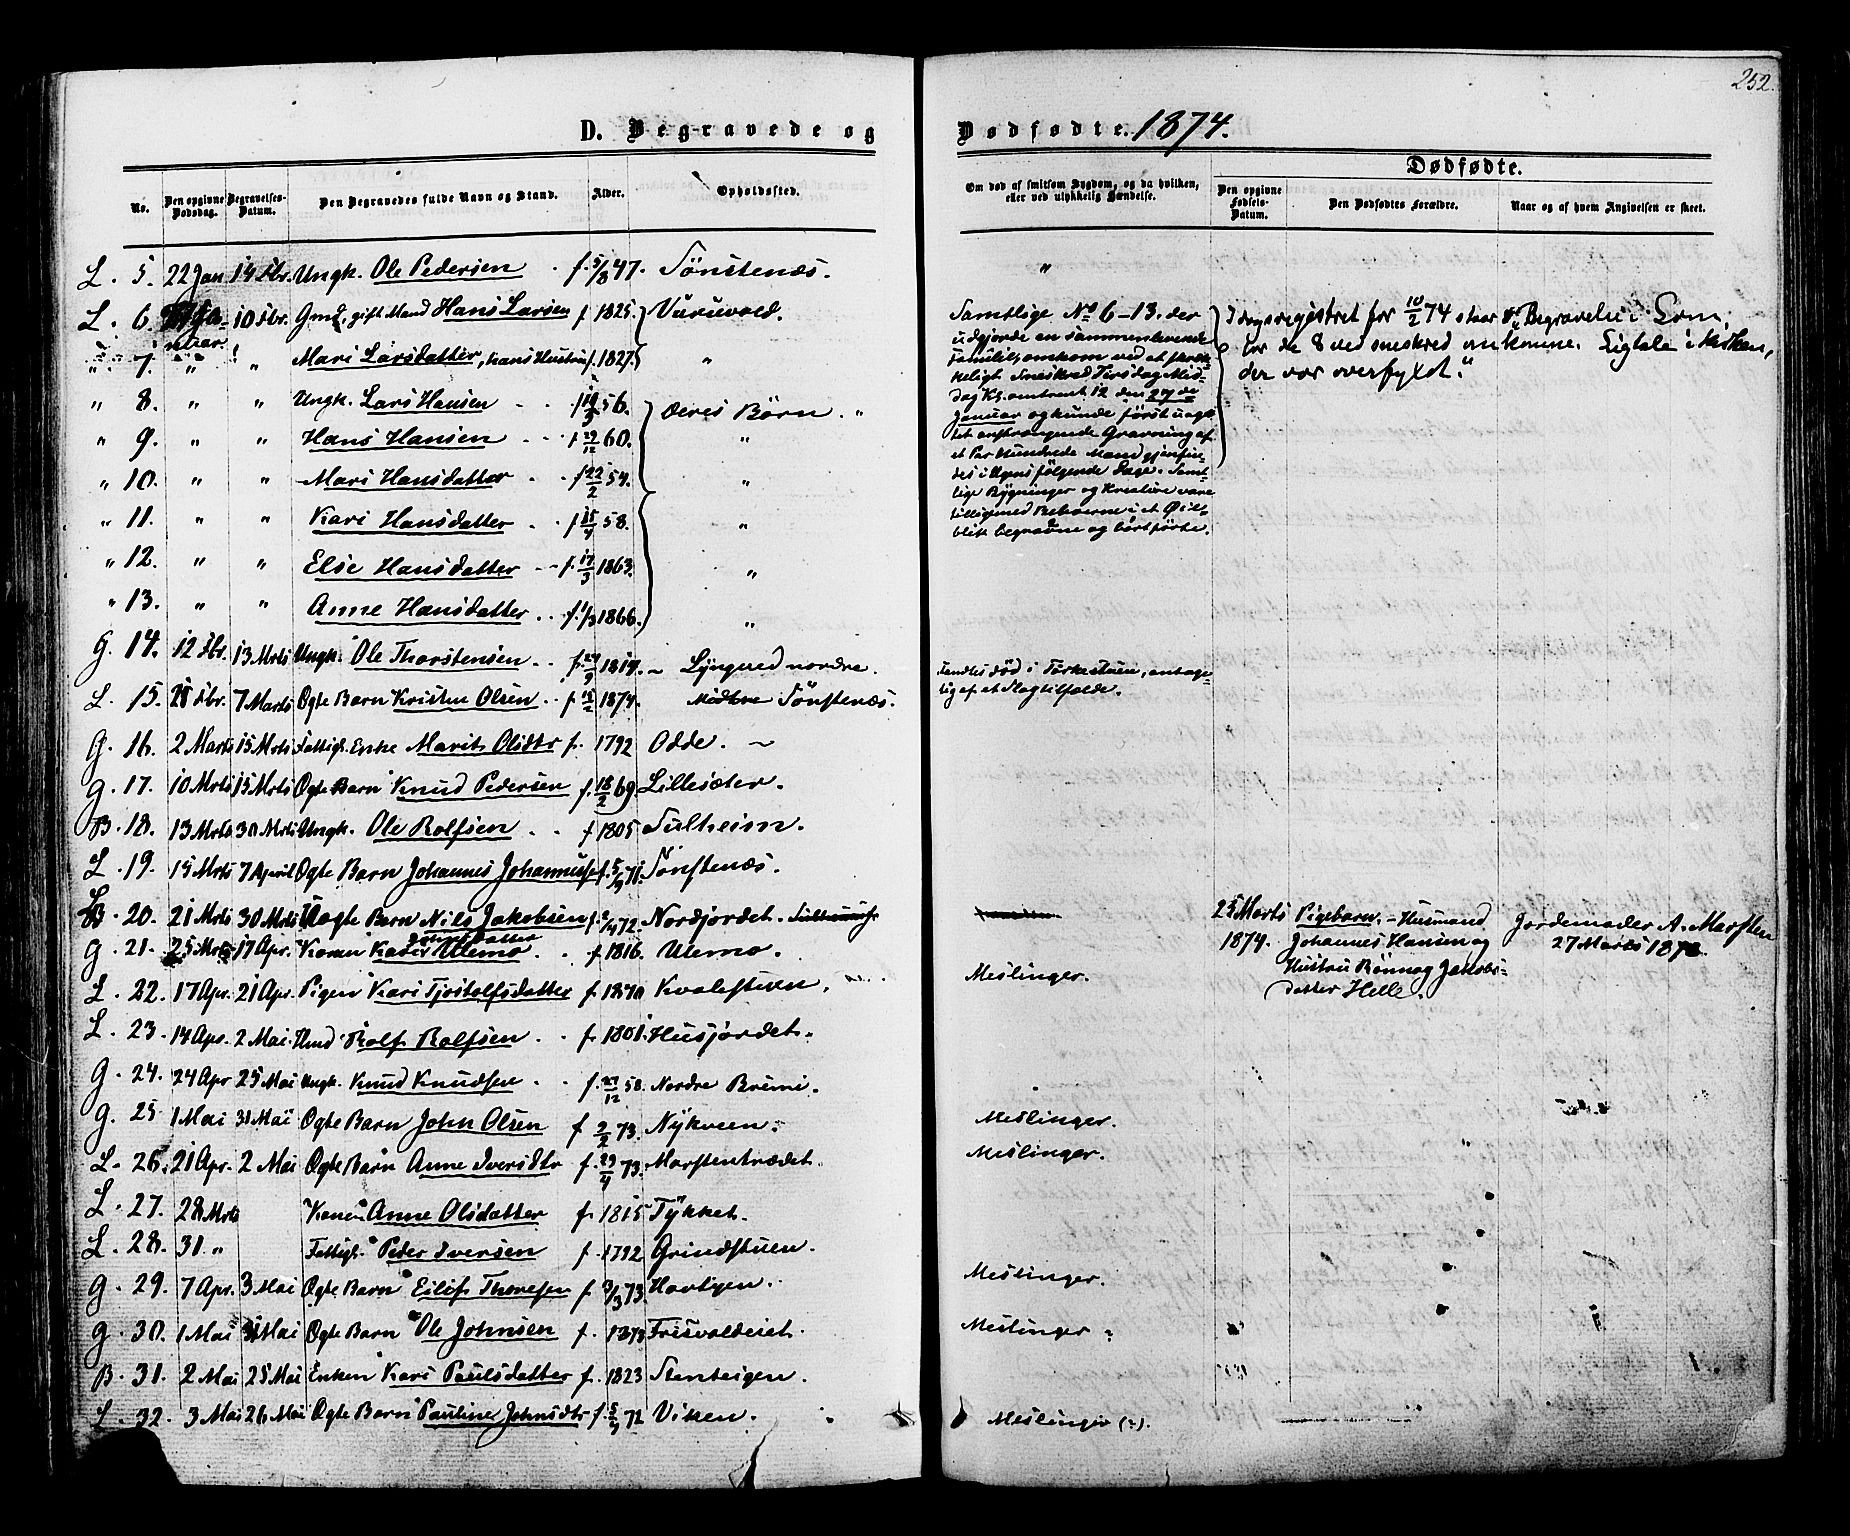 252.
D. Begravede og Dødfødte. 1874.
Dødfødte.
No. Den opgivne Dødsdag. Begravelses-Datum. Den Begravedes fulde Navn og Stand. Alder. Opholdssted. Om død af smitsom Sygdom, og da hvilken, eller ved ulykkelig Hændelse. Den opgivne Fødsels-Datum. Den Dødfødtes Forældre. Naar og af hvem Angivelsen er skeet.
L. 5. 22 Jan 14 Fbr. Ungk. Ole Pedersen f. 5/8 47. Sønstenæs. "
L. 6. 10 Fbr. Gmd, gift Mand Hans Larsen f 1825. Vuruvold.
" 7. " " Mari Larsdatter, hans Hustru f. 1827. "
" 8. " " Ungk. Lars Hansen 56. Deres Børn. "
" 9. " " Hans Hansen f 29/12 60. "
" 10. " " Mari Hansdatter f 22/2 54. "
" 11. " " Kari Hansdatter f 15/4 58. "
" 12. " " Else Hansdatter f. 17/3 1863. "
" 13. " " Anne Hansdatter f. 1/3 1866. "
Samtlige No 6-13. der
udgjorde en sammenlevende
Familie, omkom ved et skræk-
keligt Sneskred Tirsdag Mid-
dag Kl. omtrent 12 den 27de
Januar og kunde først uagt
tet anstrængende Gravning af
et Par Hundrede Mand gjenfin-
des i Ugens følgende Dage. Samt-
lige Bygninger og Kreature vare
tilligemed Beboerne i et Øie-
blik begravne og bortførte.
I dagsregistret for 10/2 74 staar "Begravelse i Lom
for de 8 ved sneskred omkomne. Ligtale i Kirken,
der var overfyldt."
G. 14. 12 Fbr. 13 Mrts Ungk. Ole Thorstensen f. 29/9 1814. Lyngved nordre. Fandtes død i Tørkestuen, antage-
lig af et Slagtilfælde.
L. 15. Fbr. 7 Marts Ægte Barn Kristen Olsen f. 15/2 1874. Midtre Sønstenæs.
G. 16. 2 Marts 15 Mrts Fattigl. Enke Marit Olsdtr f. 1792 Odde.
G. 17. 10 Mrts 15 Mrts Ægte Barn Knud Pedersen f. 18/2 69. Lillesæter.
B. 18. 13 Mrts 30 Mrts Ungk. Ole Rolfsen f 1805 Sulheim.
L. 19. 15 Mrts 7 April Ægte Barn Johannes Johannesse f. 5/9 71. Sønstenæs.
20. 21 Mrts 30 Mrts Uægte Barn Nils Jakobsen 72. Nordjordet.
25 Marts 1874. Pigebarn. - Husmand
Johannes Hansen og
Hustru Rønnog Jakobs-
datter Helle.
Jordemoder A. Marsten
27 Marts
G. 21. 25 Mrts 17 Apr. Konen Ulemo f 1816. Ulemo.
L. 22. 17 Apr. 21 Apr. Pigen Kari Tjostolfsdatter f. 1870 Kvalestuen. Meslinger.
L. 23. 14 Apr. 2 Mai. Hmd Rolf Rolfsen f. 1801. Husjordet.
G. 24. 24 Apr 25 Mai Ungk. Knud Knudsen f. 29/12 58. Nordre Brimi.
G. 25 1 Mai 31 Mai Ægte Barn John Olsen f 2/2 73. Nykveen. Meslinger.
L. 26. 21 Apr. 2 Mai Ægte Barn Anne Iversdtr f. 29/4 73. Marstentrædet. Meslinger. "
L. 27. 28 Mrts Konen Anne Olsdatter f. 1815 Tykket.
L. 28. 31. " Fattigl. Peder Iversen f. 1792 Grindstuen.
G. 29. 7 Apr. 3 Mai Ægte Barn Eilif Thoresen f 3/3 73. Havtgen. Meslinger.
G. 30. 1 Mai 31 Mai Ægte Barn Ole Johnsen f. 1873 Frisvoldeiet. Meslinger
B. 31. 2 Mai 25 Mai Enken Kari Paulsdatter f. 1823 Stenteigen.
L. 32. 3 Mai 26 Mai Ægte Barn Pauline Johnsdtr f. 5/9 72 Viken. Meslinger (?).